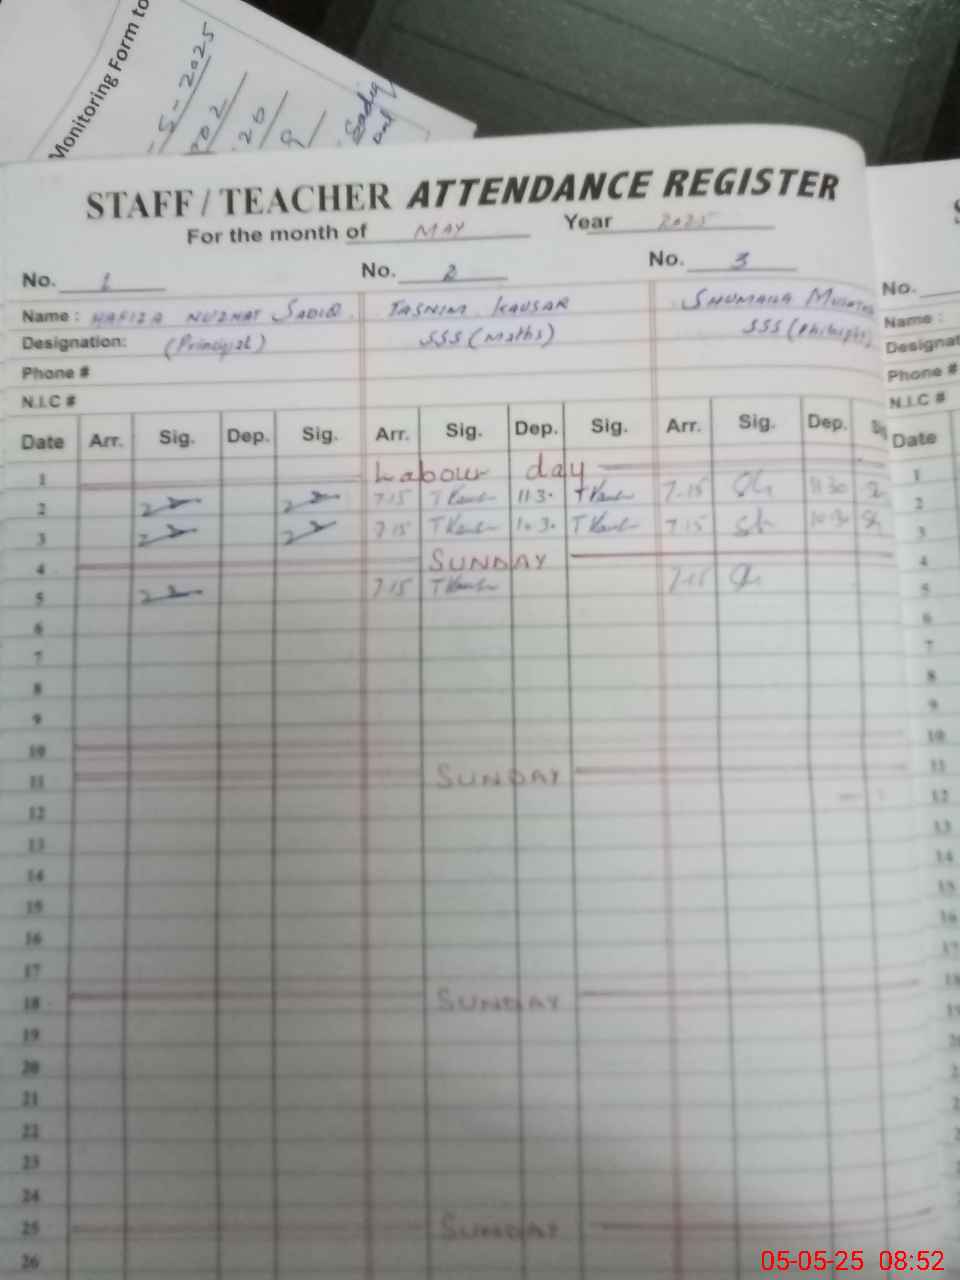 Monitoring Form to
5-2025
202
20
9
Sadiq
and
STAFF / TEACHER ATTENDANCE REGISTER
For the month of MAY Year 2025
No. 1 No. 2 No. 3 No.
Name : HAFIZA NUZHAT SADIQ TASNIM KAUSAR SHUMAILA Name :
Designation: (Principal) SSS (Maths) SSS Designat
Phone # Phone #
N.I.C # N.I.C #
Date Arr. Sig. Dep. Sig. Arr. Sig. Dep. Sig. Arr. Sig. Dep. Sig Date
1 Labour day 1
2 7-15 T Kausar 11-30 T Kausar 7-15 11 30 2
3 7-15 T Kausar 10-30 T Kausar 7-15 10-30 3
4 SUNDAY 4
5 7-15 T Kausar 7-15 5
6 6
7 7
8 8
9 9
10 10
11 SUNDAY 11
12 12
13 13
14 14
15 15
16 16
17 17
18 SUNDAY 18
19 19
20
21
22
23
24
25 SUNDAY
26
05-05-25 08:52